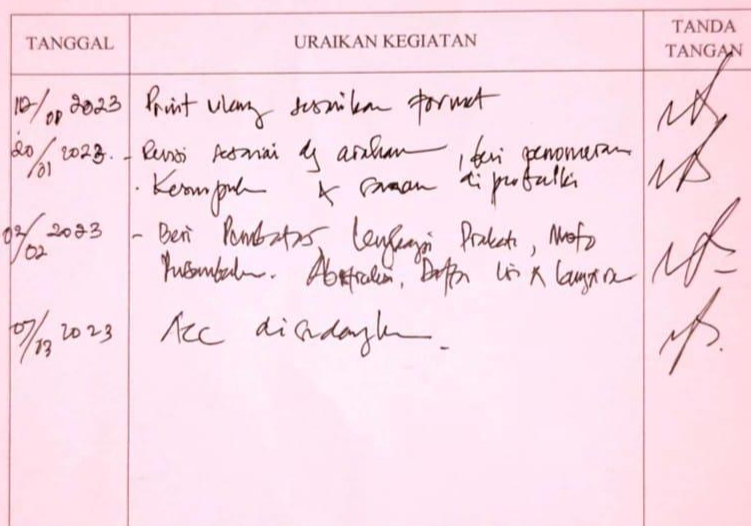 TANGGAL URAIKAN KEGIATAN TANDA TANGAN
2023 Print ulang sesuaikan format
20/01 2023. - Revisi sesuai dg arahan, beri penomoran
- Kesimpulan & saran di perbaiki
02/02 2023 - Beri Pembatas, lengkapi Prakata, Moto
Persembahan. Abstrak, Daftar Isi & lampiran
07/03 2023 Acc disidangkan